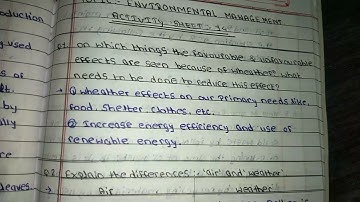 oduction
TOPIC - ENVIRONMENTAL MANAGEMENT
ACTIVITY SHEET - 14
g used
Q.1. on which things the favourable & unfavourable
effects are seen because of wheather? what
needs to be done to reduce this effect?
s of
lt.
→ ① wheather effects on our primary needs like,
food, shelter, clothes, etc.
by
lly
② Increase energy efficiency and use of
renewable energy.
ce
Q.2. Explain the differences : 'air and weather'
leaves. → Air weather